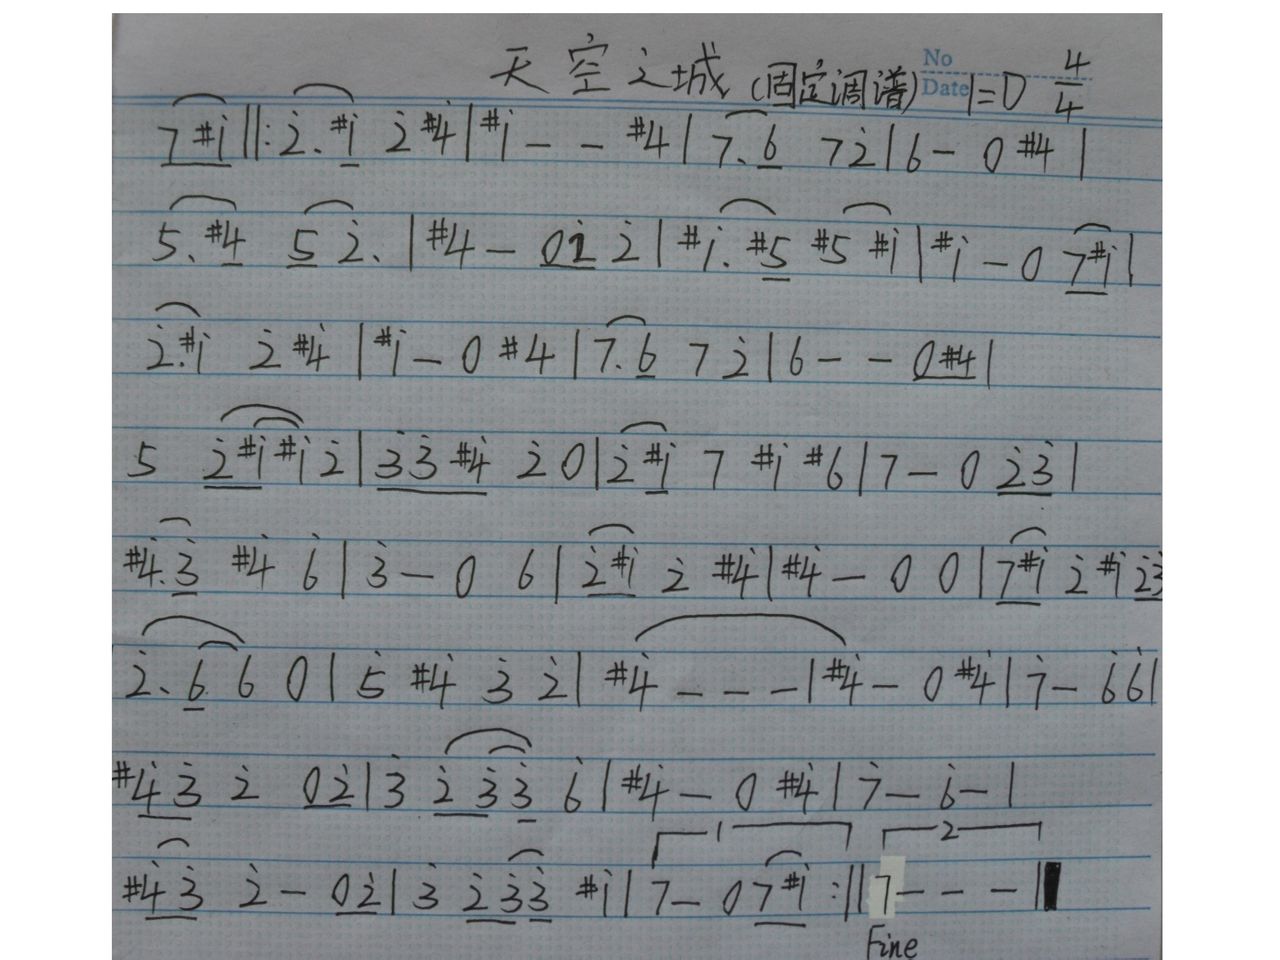 天空之城 (固定调谱) No Date 1=D 4/4
7 #i ||: 2̇. #i 2̇ #4̇ | #i - - #4 | 7. 6 7 2̇ | 6 - 0 #4 |
5. #4 5 2̇. | #4 - 0 2̇ 2̇ | #i. #5 #5 #i | #i - 0 7 #i |
2̇. #i 2̇ #4̇ | #i - 0 #4 | 7. 6 7 2̇ | 6 - - 0 #4 |
5 2̇ #i #i 2̇ | 3̇ 3̇ #4̇ 2̇ 0 | 2̇ #i 7 #i #6 | 7 - 0 2̇ 3̇ |
#4̇. 3̇ #4̇ 6̇ | 3̇ - 0 6 | 2̇ #i 2̇ #4̇ | #4̇ - 0 0 | 7 #i 2̇ #i 2̇ 3̇
2̇. 6 6 0 | 5̇ #4̇ 3̇ 2̇ | #4̇ - - - | #4̇ - 0 #4̇ | 7̇ - 6̇ 6̇ |
#4̇ 3̇ 2̇ 0 2̇ | 3̇ 2̇ 3̇ 3̇ 6̇ | #4̇ - 0 #4̇ | 7̇ - 6̇ - |
1 2
#4̇ 3̇ 2̇ - 0 2̇ | 3̇ 2̇ 3̇ 3̇ #i | 7 - 0 7 #i :|| 7 - - - ||
Fine